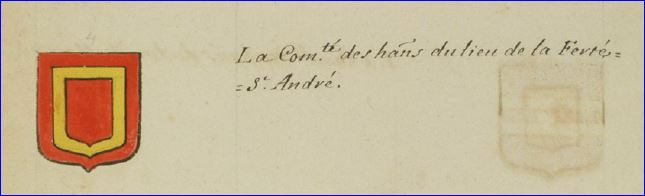 La Com.té des hañs du lieu de la Ferté=
=St. André.